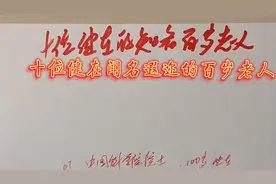 十位健在的知名百岁老人
十位健在闻名遐迩的百岁老人
01 中国科学院院士 100岁 健在